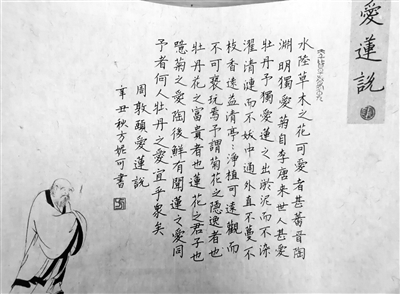 愛蓮說
水陸草木之花可愛者甚蕃晉陶
淵明獨愛菊自李唐來世人甚愛
牡丹予獨愛蓮之出淤泥而不染
濯清漣而不妖中通外直不蔓不
枝香遠益清亭:淨植可遠觀而
不可褻玩焉予謂菊花之隱逸者也
牡丹花之富貴者也蓮花之君子也
噫菊之愛陶後鮮有聞蓮之愛同
予者何人牡丹之愛宜乎眾矣
周敦頤愛蓮說
辛丑秋方妮可書